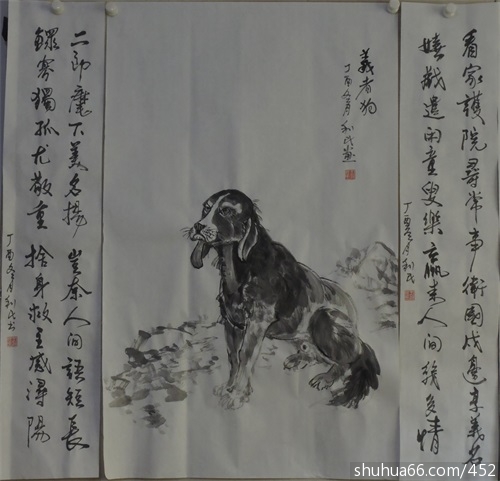 看家護院尋常事衛國戍邊享義名
嬉戲遣闲童叟樂贏来人间幾多情
丁酉冬月利民
義者狗
丁酉冬月利民画
二郎麾下美名揚豈奈人间語短長
鰥寡獨孤尤敬重捨身救主感潯陽
丁酉冬月利民书
shuhua66.com/452